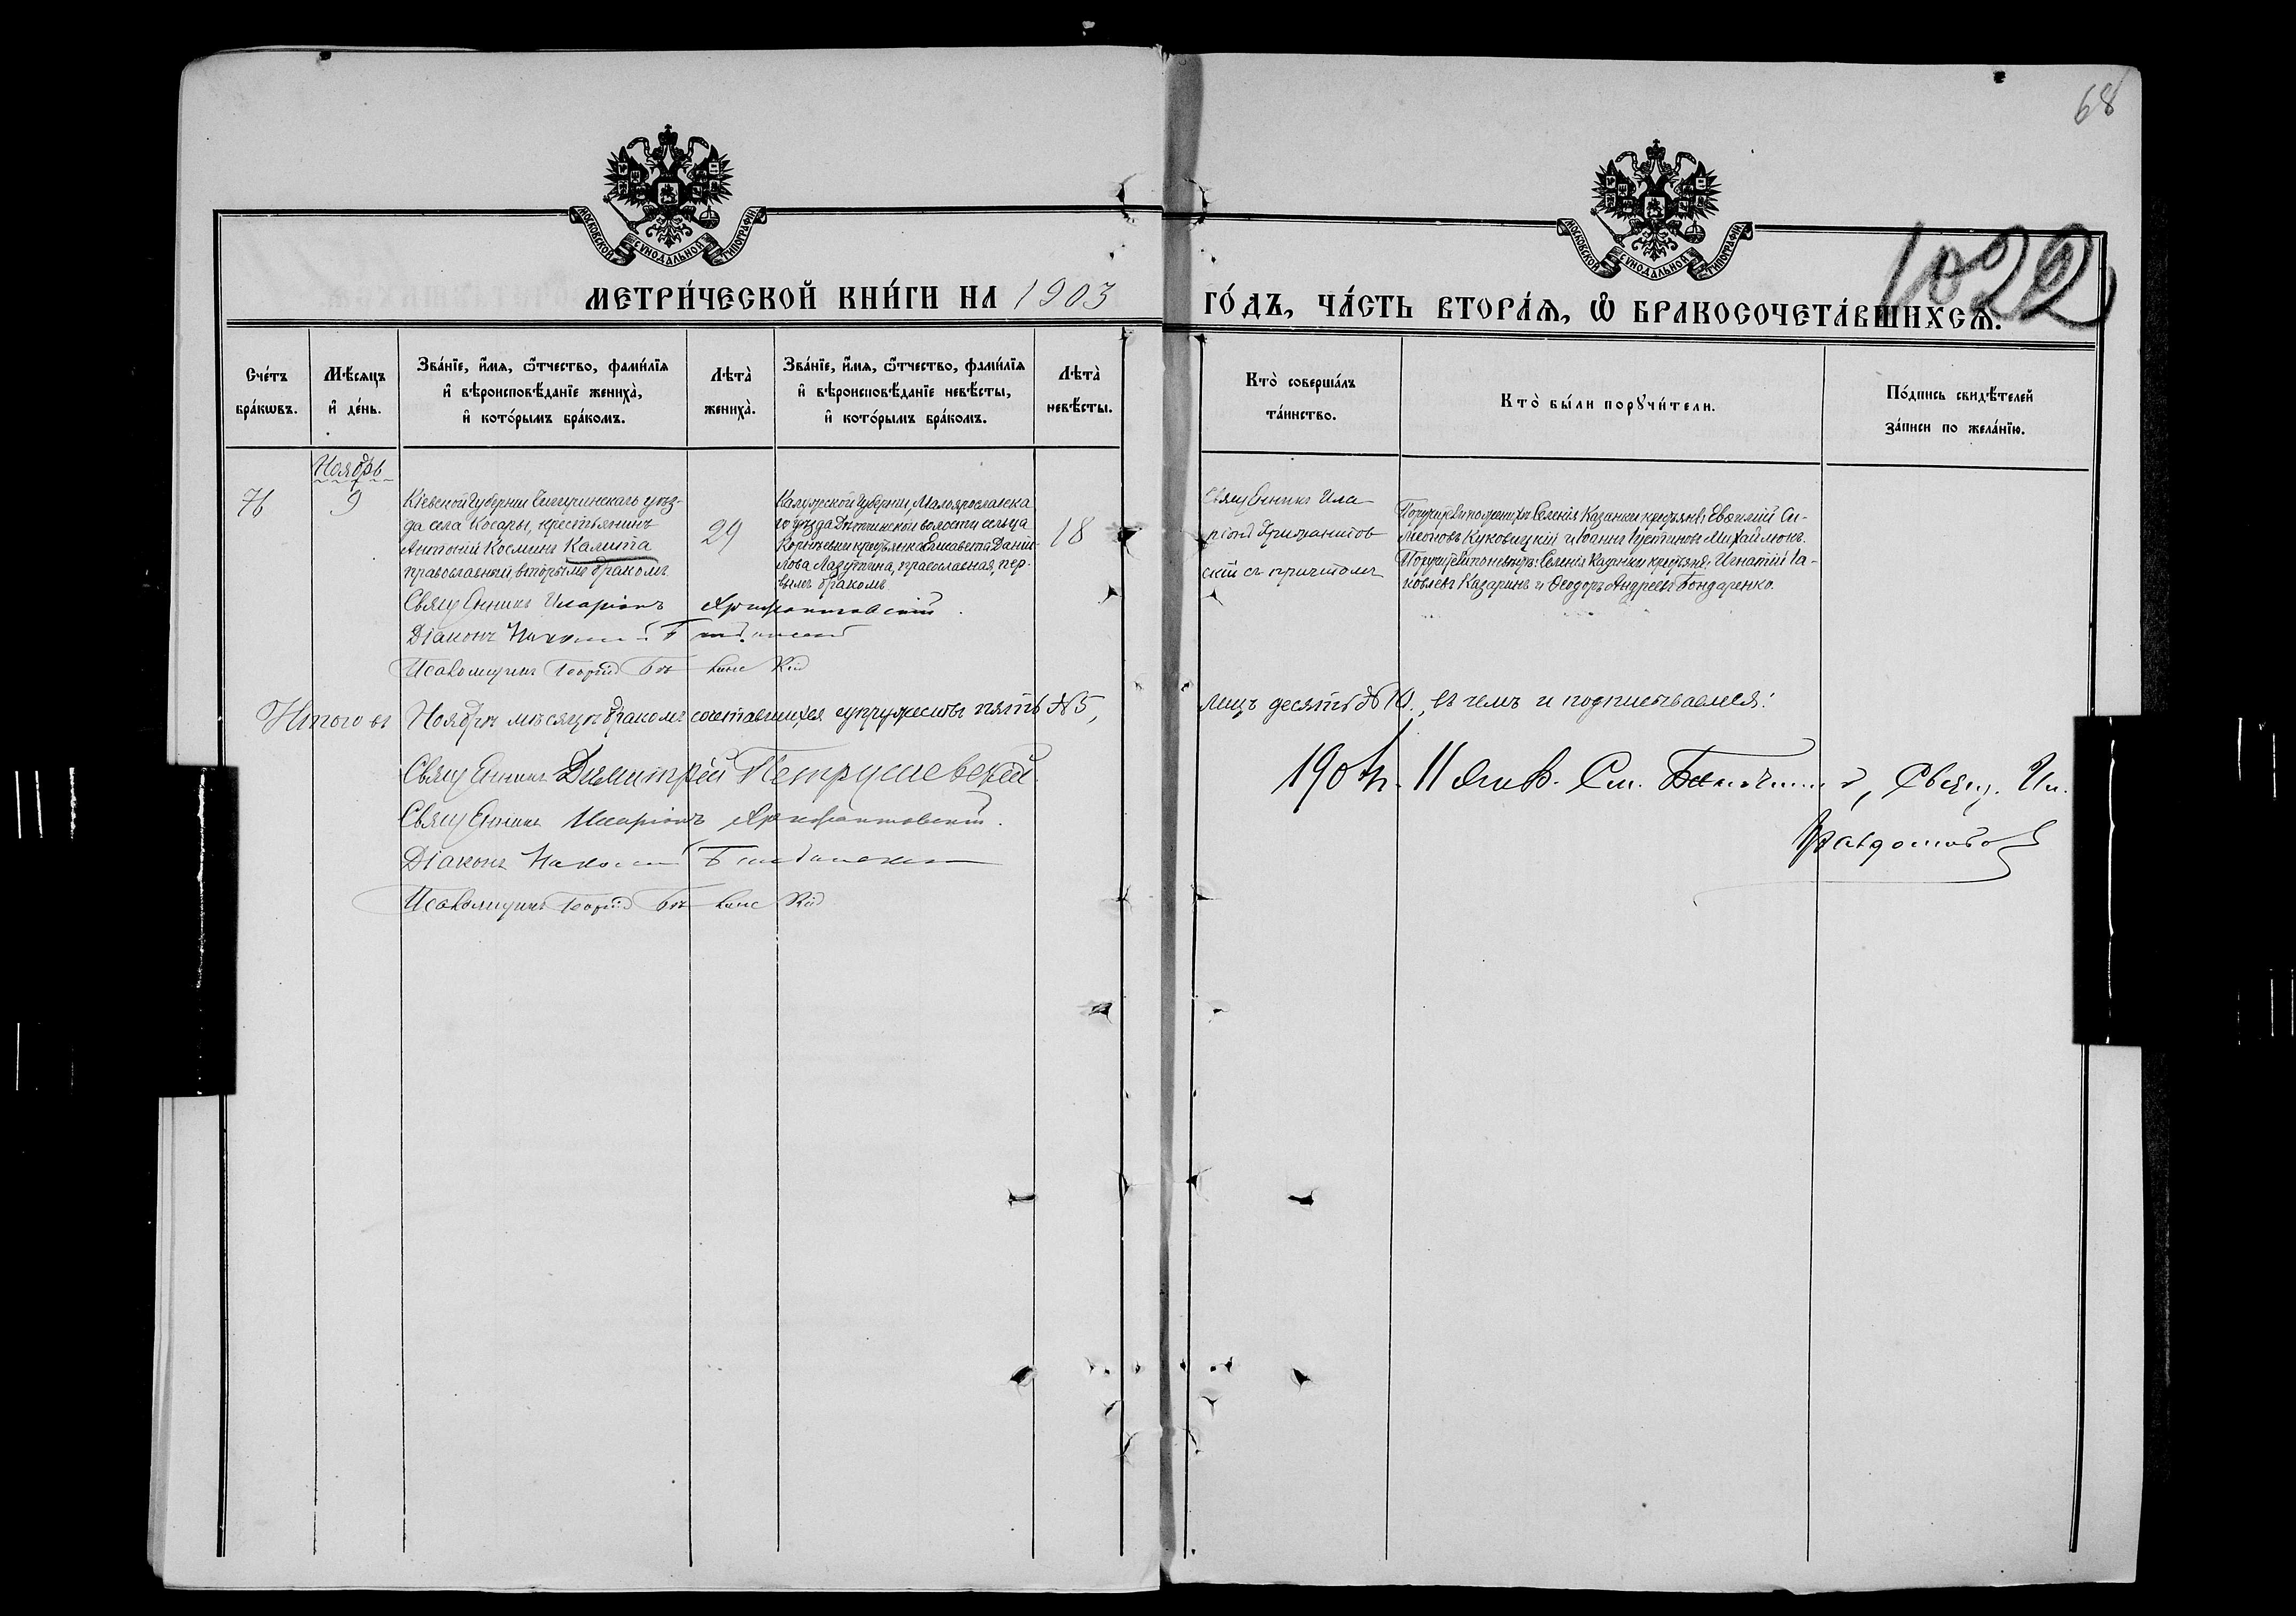 68
1022
МОСКОВСКОЙ СѴНОДАЛЬНОЙ ТИПОГРАФІИ
МОСКОВСКОЙ СѴНОДАЛЬНОЙ ТИПОГРАФІИ
МЕТРИ́ЧЕСКОЙ КНИ́ГИ НА 1903 ГО́ДЪ, ЧА́СТЬ ВТОРА́Ѧ, Ѽ БРАКОСОЧЕТА́ВШИХСѦ.
Сче́тъ
бра́кѡвъ.
Мѣ́сяцъ
и҆ де́нь.
Зва́нїе, и҆́мя, ѻ҆́тчество, фами́лїя
и҆ вѣроисповѣ́данїе жениха̀,
и҆ кото́рымъ бра́комъ.
Лѣта̀
жениха̀.
Зва́нїе, и҆́мя, ѻ҆́тчество, фами́лїя
и҆ вѣроисповѣ́данїе невѣ́сты,
и҆ кото́рымъ бра́комъ.
Лѣта̀
невѣ́сты.
Кто̀ соверша́лъ
та́инство.
Кто̀ бы́ли порꙋчи́тели.
По́дпись свидѣ́телей
за́писи по жела́нїю.
Ноябрь
76
9
Кіевской Губерніи Чигиринскаго уѣз-
да села Косары, крестьянинъ
Антоній Косминъ Калита
православный, вторымъ бракомъ
29
Калужской Губерніи, Малоярославска
го уѣзда Дѣтчинской волости сельца
крестьянка Елисавета Даніи-
лова Лазутина, православная, пер-
вымъ бракомъ
18
Священникъ Ила-
ріонъ Хрисанѳов
скій съ причтомъ
Поручители по женихѣ: Селенія Казанки крестьяне: Евѳимій Си-
меоновъ Куковицкій и Іоаннъ Іустиновъ Михайлюкъ.
Поручители по невѣстѣ: Селенія Казанки крестьяне: Игнатій Іа-
ковлевъ Казаринъ и Ѳеодоръ Андреевъ Бондаренко.
Священникъ Иларіонъ Хрисанѳовскій.
Діаконъ
Псаломщикъ Георгій
Итого въ Ноябрѣ мѣсяцѣ бракомъ сочетавшихся супружествъ пять № 5, лицъ десять № 10., въ чемъ и подписываемся:
Священникъ Димитрій Петрушевскій.
Священникъ Иларіонъ Хрисанѳовскій.
Діаконъ
Псаломщикъ Георгій
1904 г. 11 Янв. См. Благочинный, Свящ. Ил.